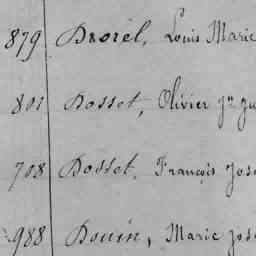 879 Droïel, Louis Marie
801 Dosset, Olivier
708 Dosset, François
988 Douin, Marie